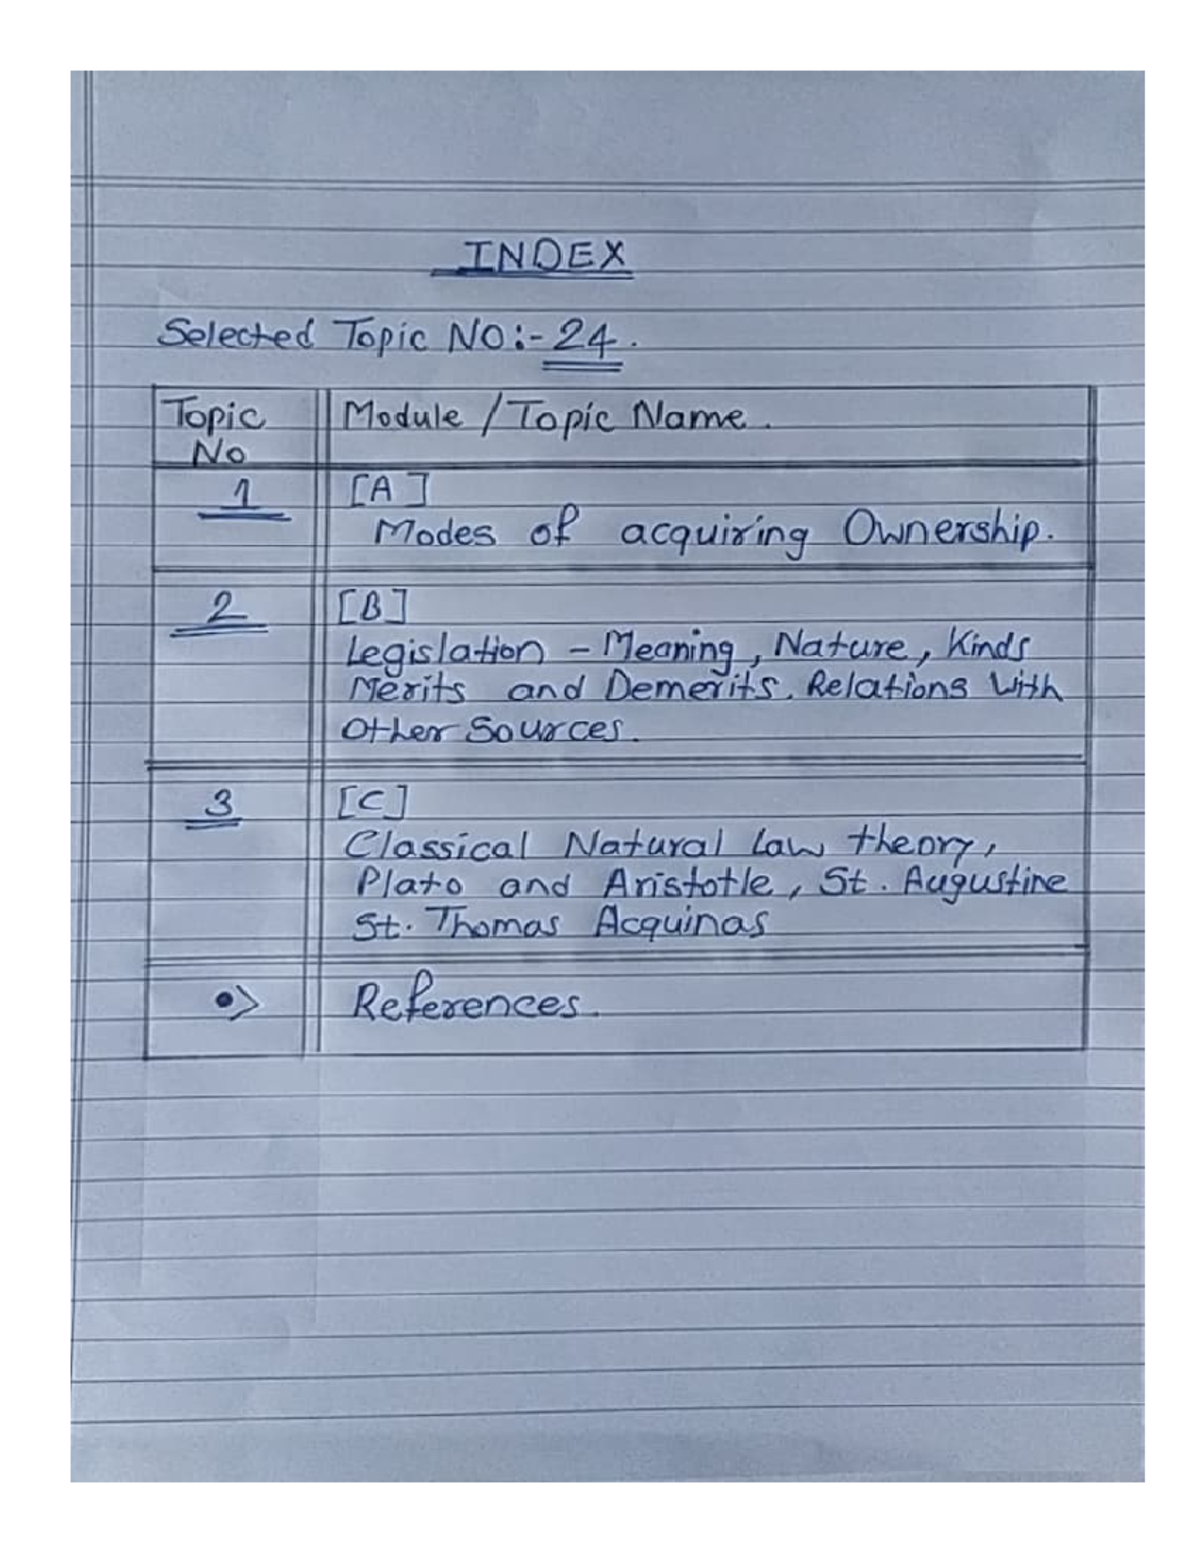 INDEX
Selected Topic NO:- 24.
Topic No
Module / Topic Name.
1
[A]
Modes of acquiring Ownership.
2
[B]
Legislation - Meaning, Nature, Kinds
Merits and Demerits. Relations With
Other Sources.
3
[C]
Classical Natural Law theory,
Plato and Aristotle, St. Augustine
St. Thomas Acquinas
•> References.